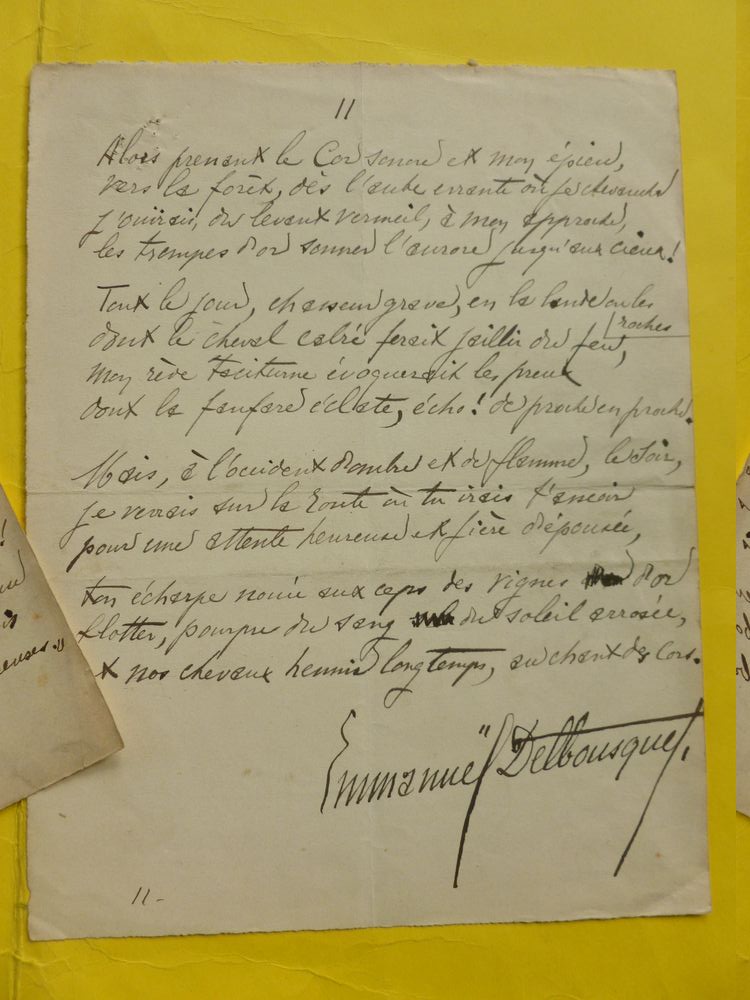 11
Alors prenant le Cor sonore et mon épieu,
vers la forêt, dès l'aube errante où je chevauche
j'ouïrais, du levant vermeil, à mon approche,
les trompes d'or sonner l'aurore jusqu'aux cieux!
Tout le jour, chasseur grave, en la lande ou les
roches
dont le cheval cabré ferait jaillir du feu,
mon rêve taciturne évoquerait les preux
dont la fanfare éclate, écho! de proche en proche.
Mais, à l'occident d'ombre et de flamme, le Soir,
je verrais sur la route où tu irais t'asseoir
pour une attente heureuse et fière d'épousée,
ton écharpe nouée aux ceps des vignes d'or
flotter, pourpre du sang du soleil arrosée,
et nos chevaux hennir longtemps, au chant des Cors.
Emmanuel Delbousquet.
11-